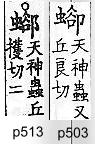 天神蟲又
丘良切
天神蟲丘
切二
p513 p503